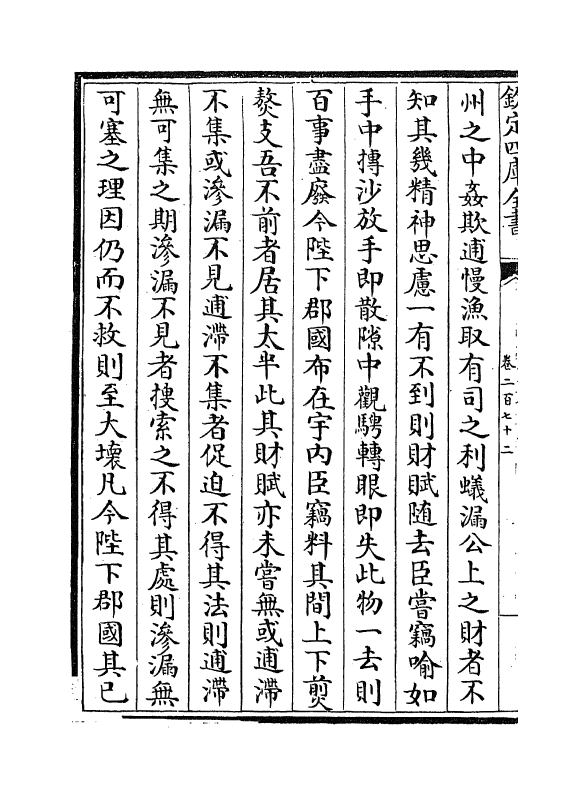 欽定四庫全書
卷二百七十二
州之中姦欺逋慢漁取有司之利蟻漏公上之財者不
知其幾精神思慮一有不到則財賦随去臣嘗竊喻如
手中摶沙放手即散隙中觀騁轉眼即失此物一去則
百事盡廢今陛下郡國布在宇内臣竊料其間上下煎
熬支吾不前者居其太半此其財賦亦未嘗無或逋滯
不集或滲漏不見逋滯不集者促迫不得其法則逋滯
無可集之期滲漏不見者捜索之不得其處則滲漏無
可塞之理因仍而不救則至大壊凡今陛下郡國其已